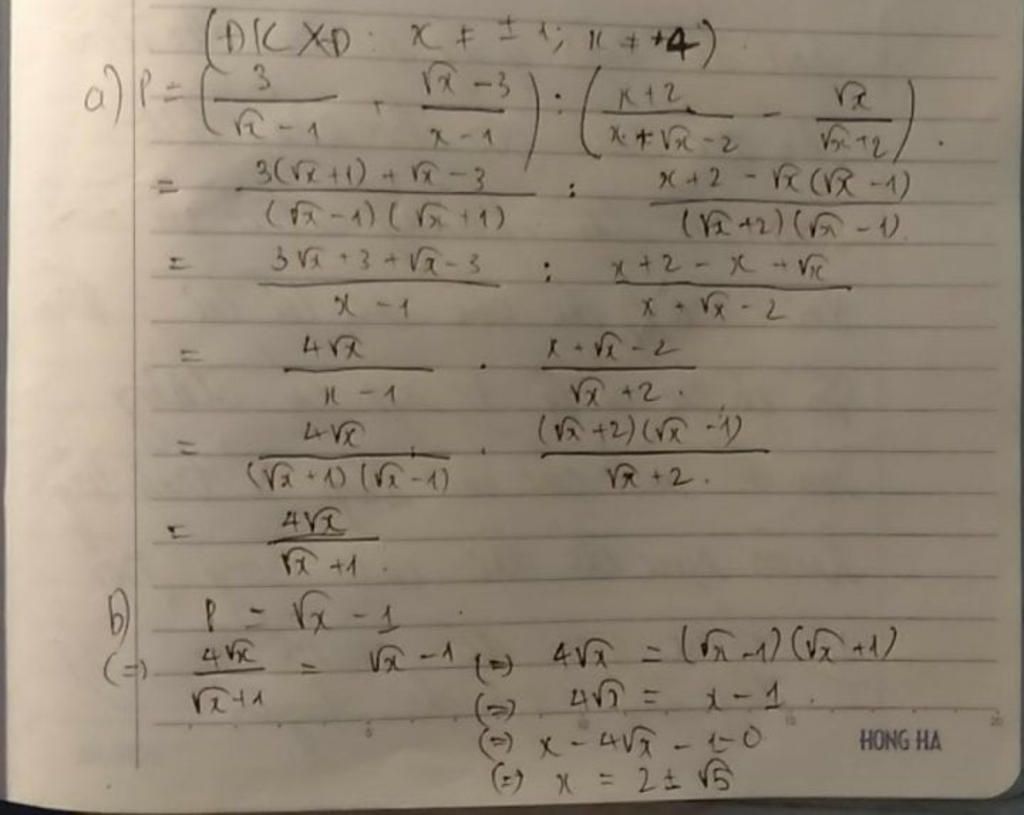 (ĐKXĐ: x ≠ ±1; x ≠ +4)
a) P = (3/(√x - 1) + (√x - 3)/(x - 1)) : ((x + 2)/(x + √x - 2) - √x/(√x + 2)).
= (3(√x + 1) + √x - 3)/((√x - 1)(√x + 1)) : (x + 2 - √x(√x - 1))/((√x + 2)(√x - 1)).
= (3√x + 3 + √x - 3)/(x - 1) : (x + 2 - x + √x)/(x + √x - 2)
= 4√x/(x - 1) . (x + √x - 2)/(√x + 2).
= 4√x/((√x + 1)(√x - 1)) . ((√x + 2)(√x - 1))/(√x + 2).
= 4√x/(√x + 1).
b) P = √x - 1
(=) 4√x/(√x + 1) = √x - 1 (=) 4√x = (√x - 1)(√x + 1)
(=) 4√x = x - 1.
(=) x - 4√x - 1 = 0
HONG HA
(=) x = 2 ± √5